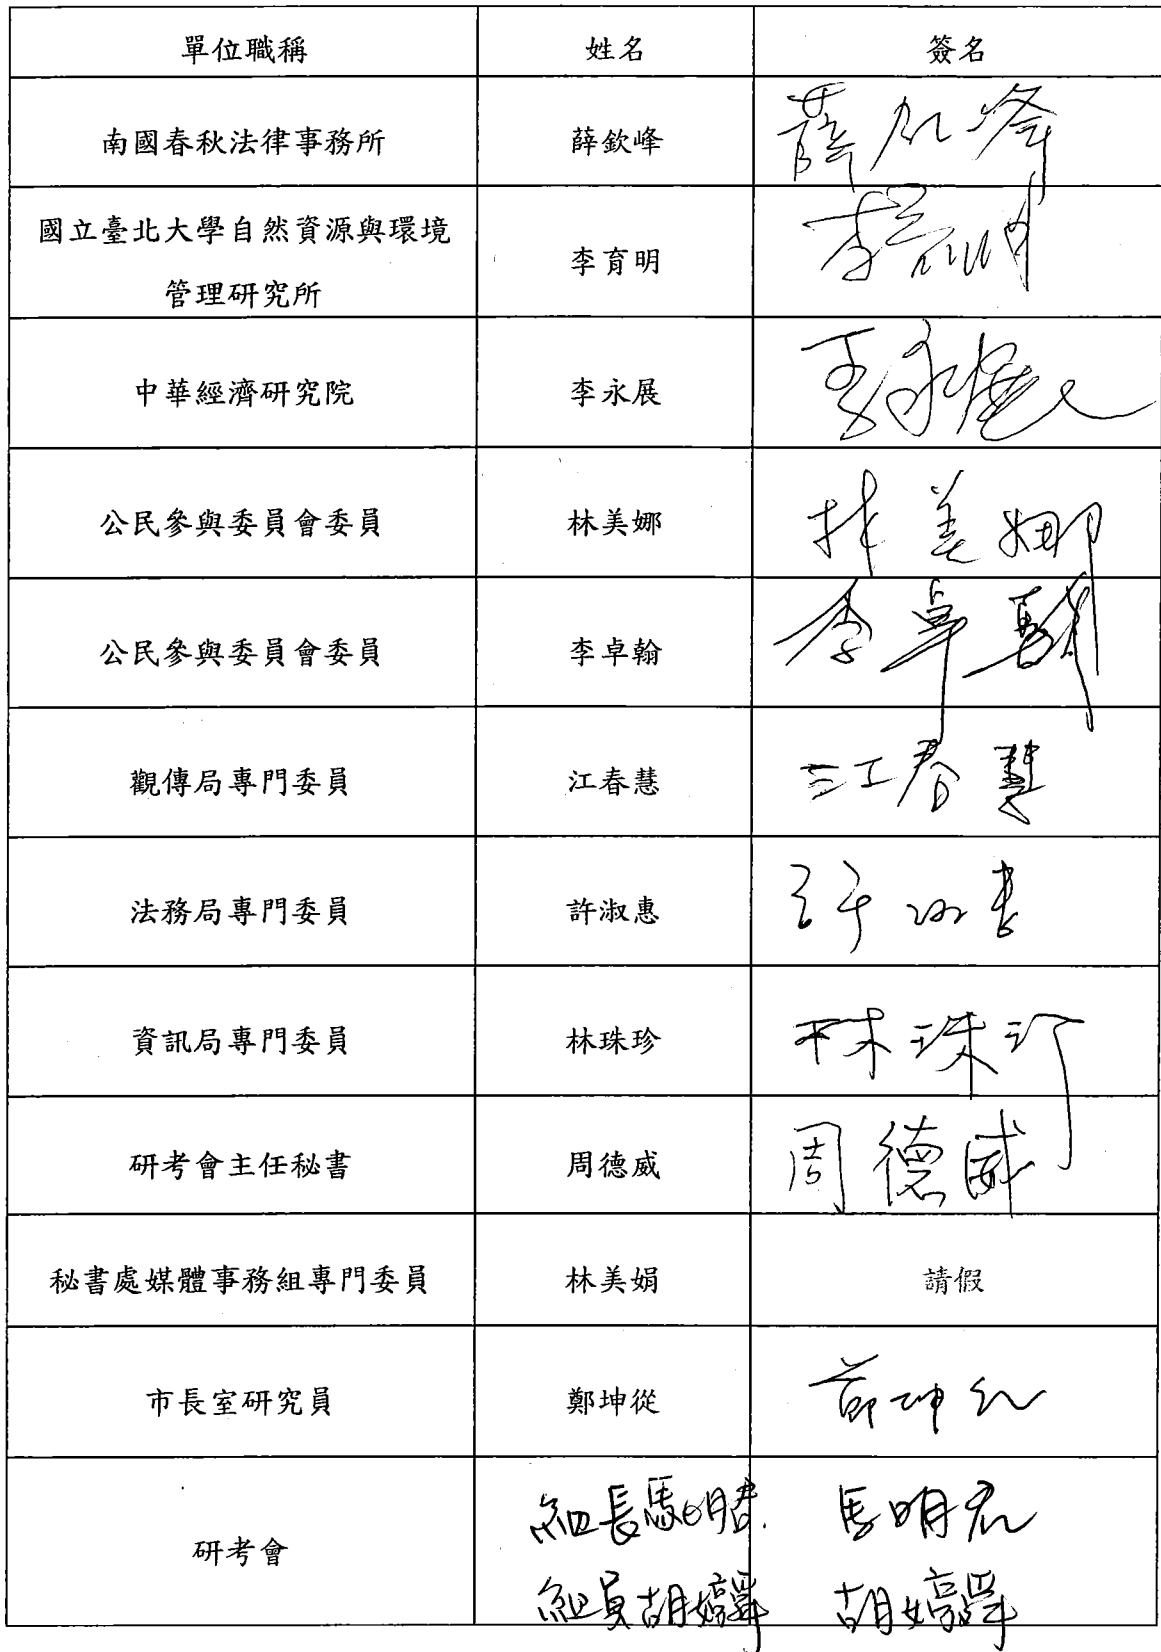 單位職稱 姓名 簽名
南國春秋法律事務所 薛欽峰 薛欽峰
國立臺北大學自然資源與環境
管理研究所 李育明 李育明
中華經濟研究院 李永展 李永展
公民參與委員會委員 林美娜 林美娜
公民參與委員會委員 李卓翰 李卓翰
觀傳局專門委員 江春慧 江春慧
法務局專門委員 許淑惠 許淑惠
資訊局專門委員 林珠珍 林珠珍
研考會主任秘書 周德威 周德威
秘書處媒體事務組專門委員 林美娟 請假
市長室研究員 鄭坤從 鄭坤從
研考會 組長馬明君 馬明君
組員胡婷 胡婷